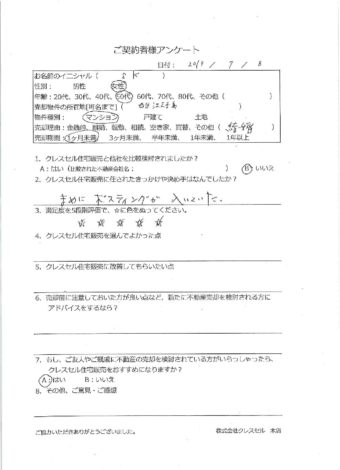 ご契約者様アンケート
日付: 2019 / 7 / 8
お名前のイニシャル ( S K )
性別: 男性 女性
年齢: 20代、30代、40代、50代、60代、70代、80代、その他 ( )
売却物件の所在地[町名まで] ( )
物件種別: マンション 戸建て 土地
売却理由: 金銭的、離婚、転勤、相続、空き家、買替、その他 ( )
売却期間: 1ヶ月未満 3ヶ月未満 半年未満 1年未満、 1年以上
1、クレスセル住宅販売と他社を比較検討されましたか?
A: はい (比較された不動産会社名: ) B: いいえ
2、クレスセル住宅販売に任された きっかけや決め手はなんでしたか?
まめに ポスティングが 入っていた。
3、満足度を5段階評価で、☆に色をぬってください。
☆ ☆ ☆ ☆ ☆
4、クレスセル住宅販売を選んでよかった点
5、クレスセル住宅販売に改善してもらいたい点
6、売却前に注意しておいた方が良い点など、新たに不動産売却を検討される方に
アドバイスをするなら?
7、もし、ご友人やご親戚に不動産の売却を検討されている方がいらっしゃったら、
クレスセル住宅販売をおすすめになりますか?
A: はい B: いいえ
8、その他、ご意見・ご感想
ご協力いただきありがとうございました。 株式会社クレスセル 本店